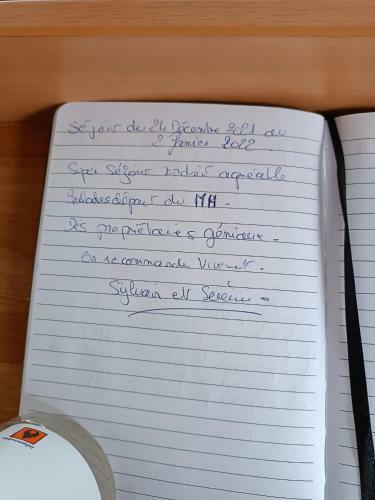 Séjour du 24 Décembre 2021 au
2 Janvier 2022.
Super Séjour Endroit agréable
Balades départ du MH.
Des propriétaires géniaux.
On recommande Vivement.
Sylvain et